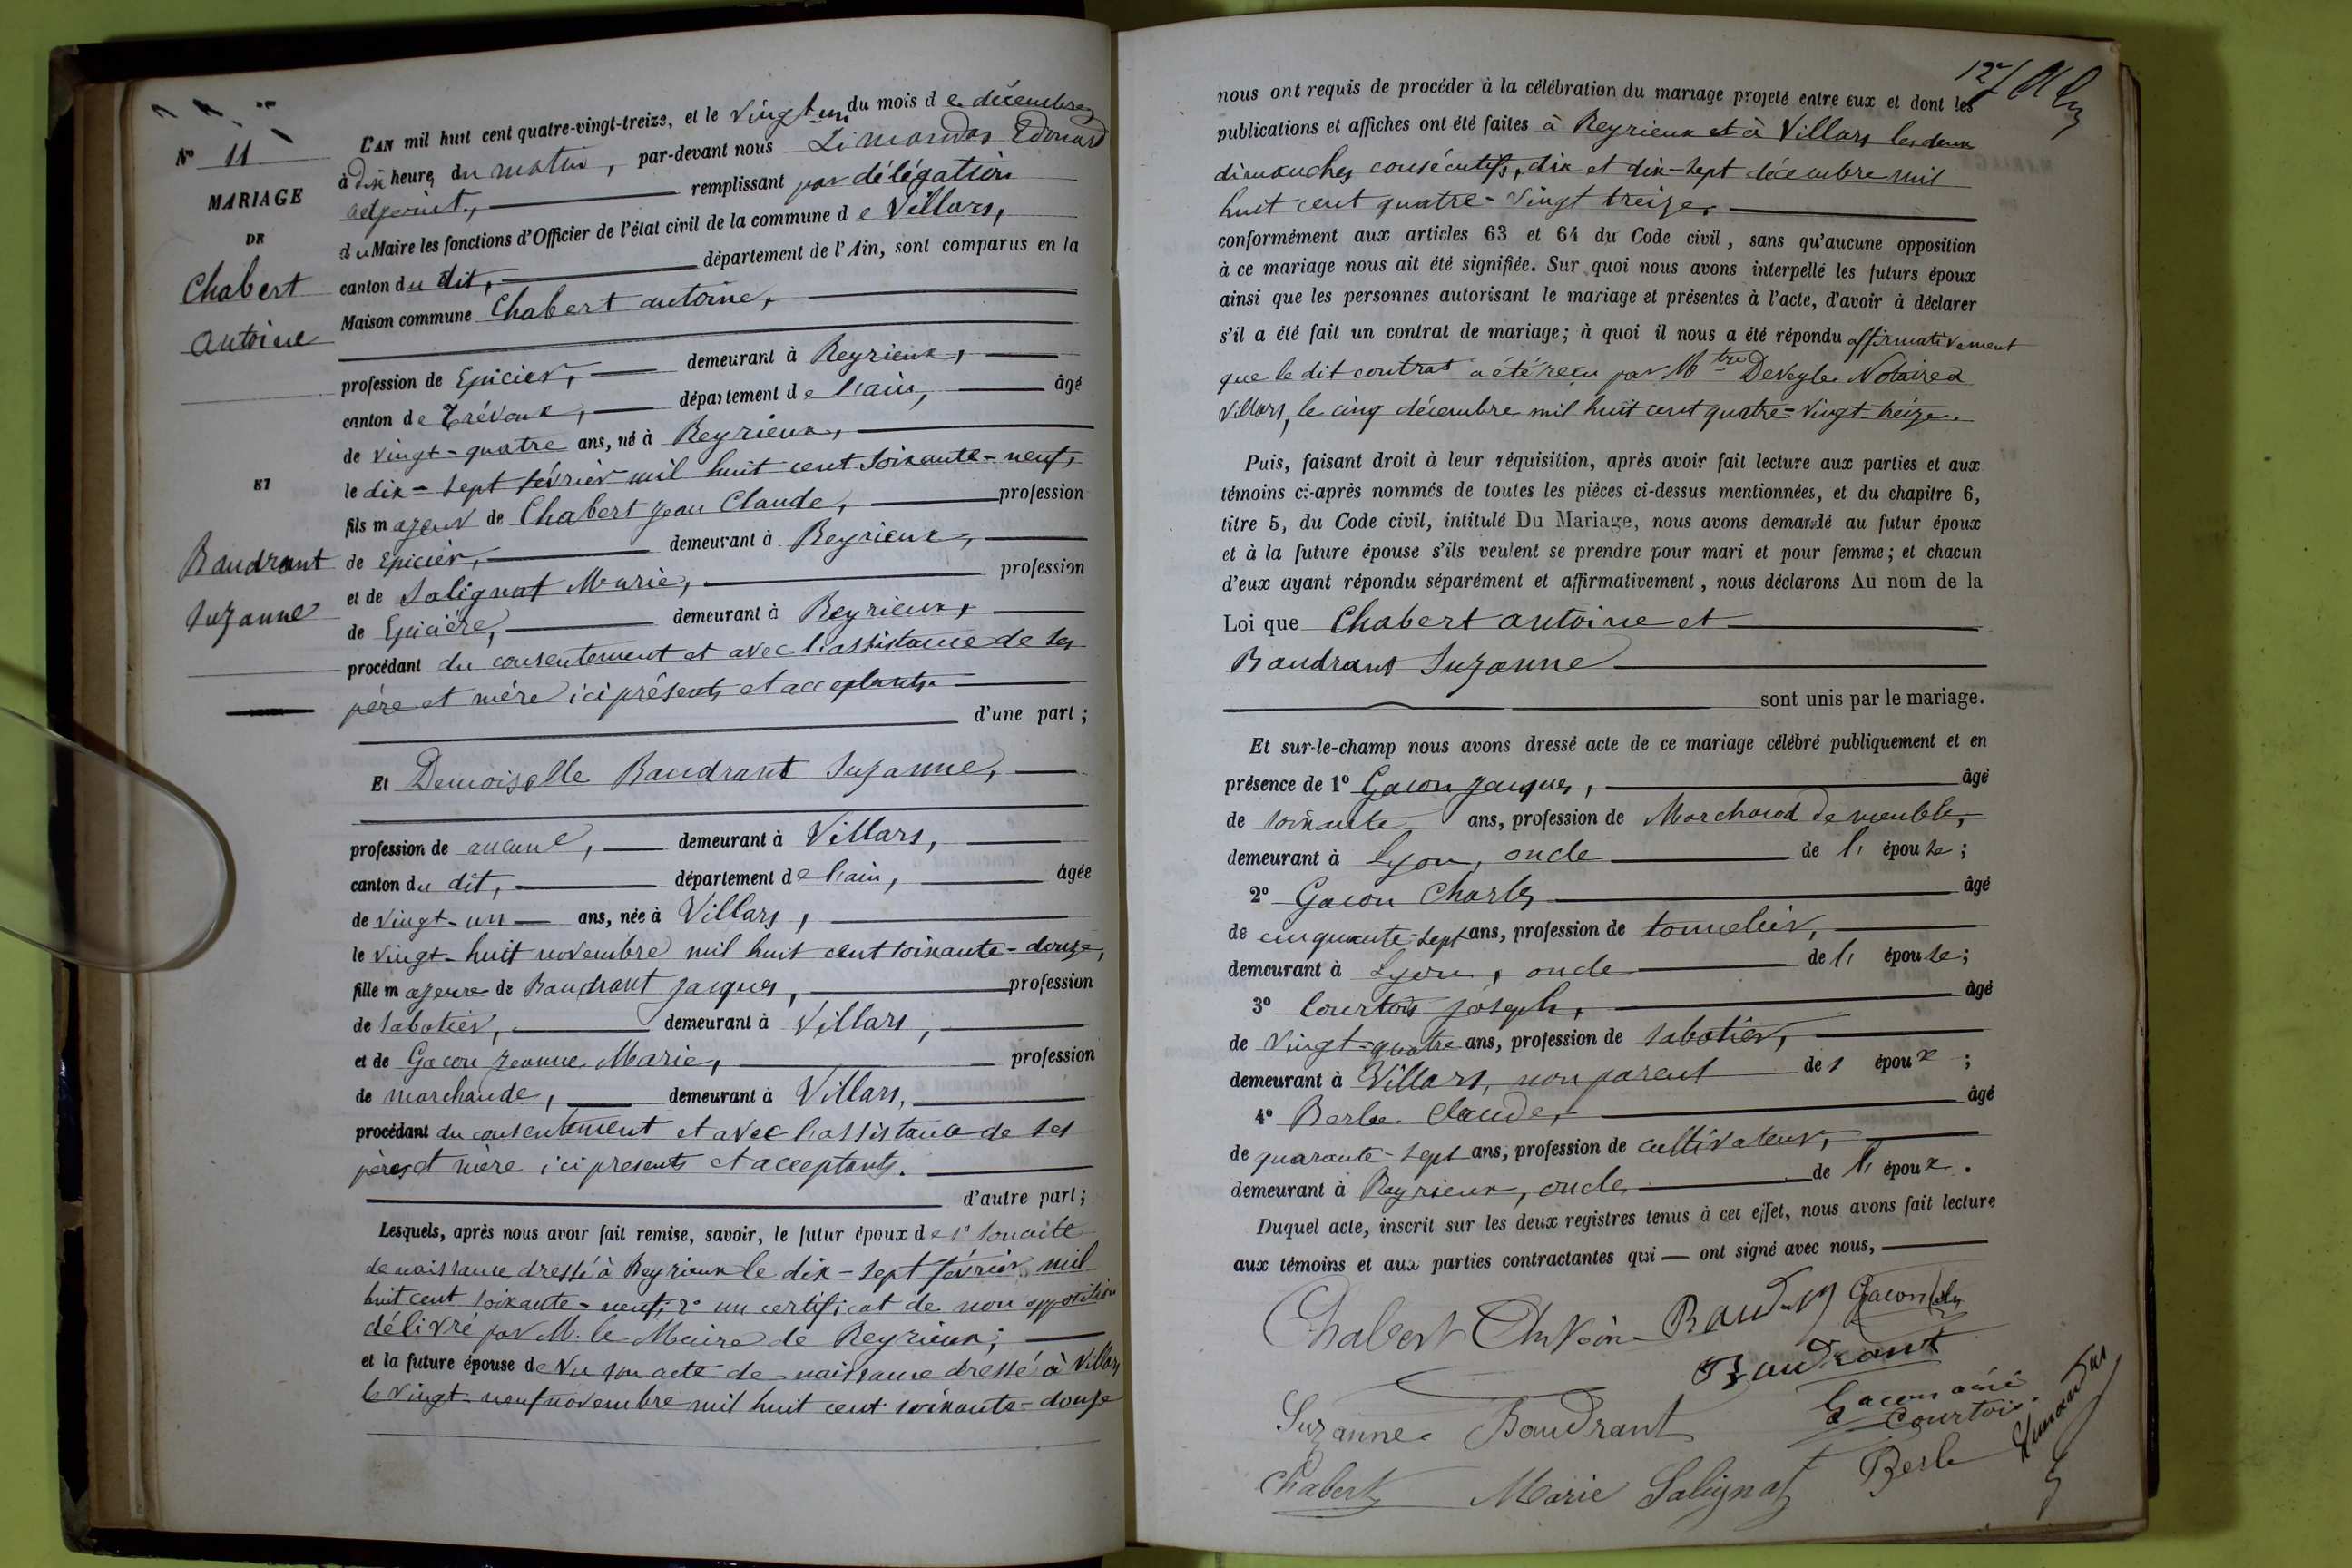 N° 11
MARIAGE
DE
Chabert
Antoine
ET
Baudrant
Suzanne
L'AN mil huit cent quatre-vingt-treize, et le vingt-un du mois de décembre
à dix heures du matin, par-devant nous Limandas Edouard
adjoint, remplissant par délégation
du Maire les fonctions d'Officier de l'état civil de la commune de Villars,
canton du dit, département de l'Ain, sont comparus en la
Maison commune Chabert antoine,
profession de Epicier, demeurant à Reyrieux,
canton de Trévoux, département de l'ain, âgé
de vingt-quatre ans, né à Reyrieux,
le dix-sept février mil huit cent soixante-neuf,
fils majeur de Chabert Jean Claude, profession
de Epicier, demeurant à Reyrieux,
et de Salignat Marie, profession
de Epicière, demeurant à Reyrieux,
procédant du consentement et avec l'assistance de ses
père et mère ici présents et acceptants.
d'une part ;
Et Demoiselle Baudrant Suzanne,
profession de aucune, demeurant à Villars,
canton du dit, département de l'ain, âgée
de vingt-un ans, née à Villars,
le vingt-huit novembre mil huit cent soixante-douze,
fille majeure de Baudrant Jacques, profession
de sabotier, demeurant à Villars,
et de Gacon Jeanne Marie, profession
de marchande, demeurant à Villars,
procédant du consentement et avec l'assistance de ses
père et mère ici presents et acceptants.
d'autre part ;
Lesquels, après nous avoir fait remise, savoir, le futur époux de 1° son acte
de naissance dressé à Reyrieux le dix-sept février mil
huit cent soixante-neuf; 2° un certificat de non opposition
délivré par M. le Maire de Reyrieux;
et la future épouse de Vu son acte de naissance dressé à Villars
le vingt-neuf novembre mil huit cent soixante-douze
12
nous ont requis de procéder à la célébration du mariage projeté entre eux et dont les
publications et affiches ont été faites à Reyrieux et à Villars les deux
dimanches consécutifs, dix et dix-sept décembre mil
huit cent quatre-vingt treize.
conformément aux articles 63 et 64 du Code civil, sans qu'aucune opposition
à ce mariage nous ait été signifiée. Sur quoi nous avons interpellé les futurs époux
ainsi que les personnes autorisant le mariage et présentes à l'acte, d'avoir à déclarer
s'il a été fait un contrat de mariage; à quoi il nous a été répondu affirmativement
que le dit contrat a été reçu par Mtre Deveyle Notaire à
Villars, le cinq décembre mil huit cent quatre-vingt-treize.
Puis, faisant droit à leur réquisition, après avoir fait lecture aux parties et aux
témoins ci-après nommés de toutes les pièces ci-dessus mentionnées, et du chapitre 6,
titre 5, du Code civil, intitulé Du Mariage, nous avons demandé au futur époux
et à la future épouse s'ils veulent se prendre pour mari et pour femme; et chacun
d'eux ayant répondu séparément et affirmativement, nous déclarons Au nom de la
Loi que Chabert antoine et
Baudrant Suzanne
sont unis par le mariage.
Et sur-le-champ nous avons dressé acte de ce mariage célébré publiquement et en
présence de 1° Gacon Jacques, âgé
de soixante ans, profession de Marchand de meuble,
demeurant à Lyon, oncle de l' épouse;
2° Gacon Charles âgé
de cinquante-sept ans, profession de tonnelier,
demeurant à Lyon, oncle de l' épouse;
3° Courtois Joseph, âgé
de vingt-quatre ans, profession de sabotier,
demeurant à Villars, non parent des époux ;
4° Berlie Claude, âgé
de quarante-sept ans, profession de cultivateur,
demeurant à Reyrieux, oncle de l' époux.
Duquel acte, inscrit sur les deux registres tenus à cet effet, nous avons fait lecture
aux témoins et aux parties contractantes qui ont signé avec nous,
Chabert Antoine Gacon
Baudrant
Suzanne Baudrant
Gacon ainé
Courtois
Chabert Marie Salignat
Limandas